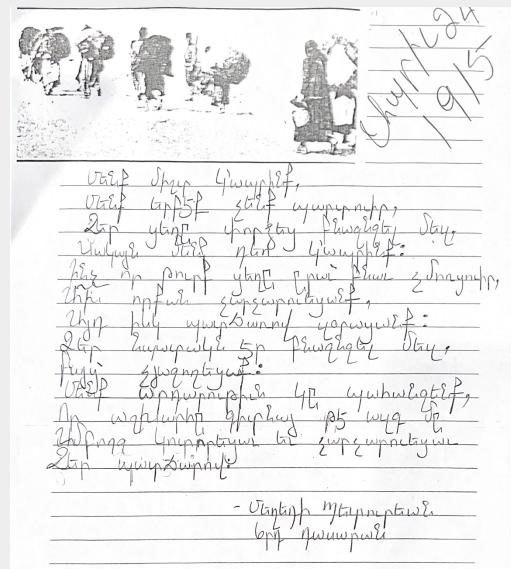 Ապրիլ 24
1915
Մենք միշտ կ'ապրինք,
Մենք երբեք չենք պարտուիր,
Ձեր ցեղը փորձեց բնաջնջել մեզ,
Սակայն մենք դեռ կ'ապրինք:
Ինչ որ թուրք ցեղը ըրաւ բնաւ չմոռցուիր,
Հին որքան չարչարուեցանք,
Հիդ իսկ պատճառով զօրացանք:
Ձեր նպատակն էր բնաջնջել մեզ,
Բայց չյաջողեցաք:
Մենք արդարութիւն կը պահանջենք,
Որ աշխարհը գիտնայ թէ ազգ մը
Ամբողջ կոտորեցաւ եւ չարչարուեցաւ
Ձեր պատճառով:
- Մեղեդի Պետուրեան
երդ դասարան